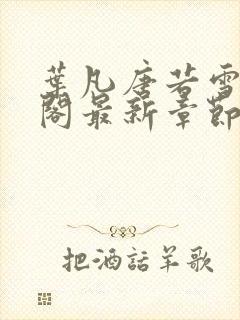 葉凡唐若雪
閣最新章節
把酒話羊歌